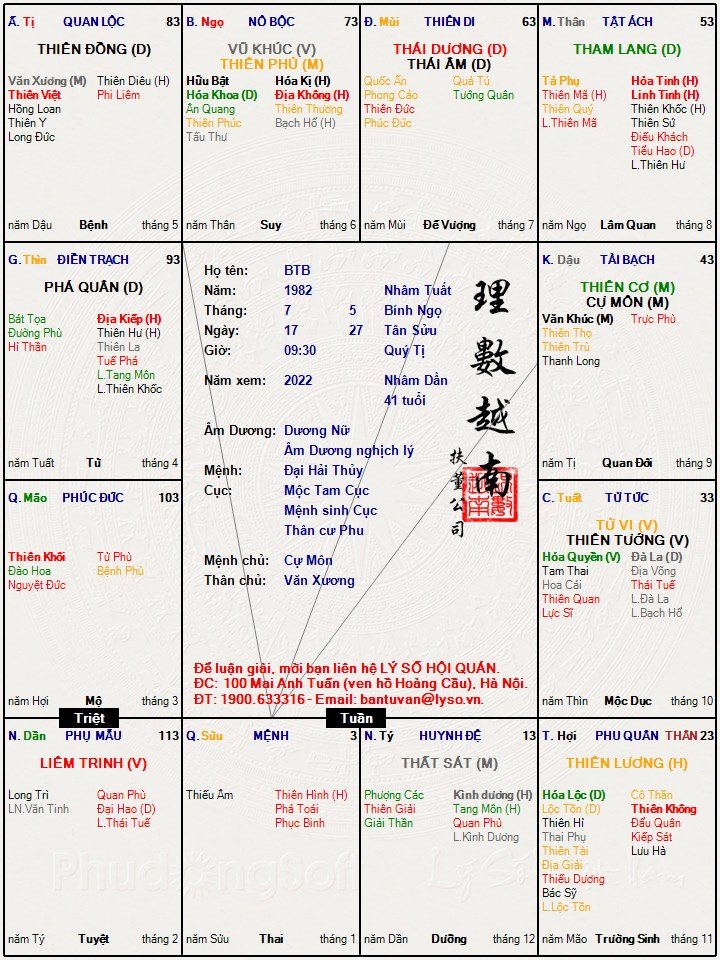 Ấ. Tị QUAN LỘC 83
THIÊN ĐỒNG (D)
Văn Xương (M) Thiên Diêu (H)
Thiên Việt Phi Liêm
Hồng Loan
Thiên Y
Long Đức
năm Dậu Bệnh tháng 5
B. Ngọ NÔ BỘC 73
VŨ KHÚC (V)
THIÊN PHỦ (M)
Hữu Bật Hóa Kị (H)
Hóa Khoa (D) Địa Không (H)
Ân Quang Thiên Thương
Thiên Phúc Bạch Hổ (H)
Tấu Thư
năm Thân Suy tháng 6
Đ. Mùi THIÊN DI 63
THÁI DƯƠNG (D)
THÁI ÂM (D)
Quốc Ấn Quả Tú
Phong Cáo Tướng Quân
Thiên Đức
Phúc Đức
năm Mùi Đế Vượng tháng 7
M. Thân TẬT ÁCH 53
THAM LANG (D)
Tả Phụ Hỏa Tinh (H)
Thiên Mã (H) Linh Tinh (H)
Thiên Quý Thiên Khốc (H)
L.Thiên Mã Thiên Sứ
Điếu Khách
Tiểu Hao (D)
L.Thiên Hư
năm Ngọ Lâm Quan tháng 8
G. Thìn ĐIỀN TRẠCH 93
PHÁ QUÂN (D)
Bát Tọa Địa Kiếp (H)
Đường Phù Thiên Hư (H)
Hỉ Thần Thiên La
Tuế Phá
L.Tang Môn
L.Thiên Khốc
năm Tuất Tử tháng 4
Họ tên: BTB
Năm: 1982 Nhâm Tuất
Tháng: 7 5 Bính Ngọ
Ngày: 17 27 Tân Sửu
Giờ: 09:30 Quý Tị
Năm xem: 2022 Nhâm Dần
41 tuổi
Âm Dương: Dương Nữ
Âm Dương nghịch lý
Mệnh: Đại Hải Thủy
Cục: Mộc Tam Cục
Mệnh sinh Cục
Thân cư Phu
Mệnh chủ: Cự Môn
Thân chủ: Văn Xương
理數越南
扶董公司
Để luận giải, mời bạn liên hệ LÝ SỐ HỘI QUÁN.
ĐC: 100 Mai Anh Tuấn (ven hồ Hoàng Cầu), Hà Nội.
ĐT: 1900.633316 - Email: bantuvan@lyso.vn.
K. Dậu TÀI BẠCH 43
THIÊN CƠ (M)
CỰ MÔN (M)
Văn Khúc (M) Trực Phù
Thiên Thọ
Thiên Trù
Thanh Long
năm Tị Quan Đới tháng 9
Q. Mão PHÚC ĐỨC 103
Thiên Khôi Tử Phù
Đào Hoa Bệnh Phù
Nguyệt Đức
năm Hợi Mộ tháng 3
C. Tuất TỬ TỨC 33
TỬ VI (V)
THIÊN TƯỚNG (V)
Hóa Quyền (V) Đà La (D)
Tam Thai Địa Võng
Hoa Cái Thái Tuế
Thiên Quan L.Đà La
Lực Sĩ L.Bạch Hổ
năm Thìn Mộc Dục tháng 10
Triệt
Tuần
N. Dần PHỤ MẪU 113
LIÊM TRINH (V)
Long Trì Quan Phù
LN.Văn Tinh Đại Hao (D)
L.Thái Tuế
năm Tý Tuyệt tháng 2
Q. Sửu MỆNH 3
Thiếu Âm Thiên Hình (H)
Phá Toái
Phục Binh
năm Sửu Thai tháng 1
N. Tý HUYNH ĐỆ 13
THẤT SÁT (M)
Phượng Các Kình dương (H)
Thiên Giải Tang Môn (H)
Giải Thần Quan Phủ
L.Kình Dương
năm Dần Dưỡng tháng 12
T. Hợi PHU QUÂN THÂN 23
THIÊN LƯƠNG (H)
Hóa Lộc (D) Cô Thần
Lộc Tồn (D) Thiên Không
Thiên Hỉ Đẩu Quân
Thai Phụ Kiếp Sát
Thiên Tài Lưu Hà
Địa Giải
Thiếu Dương
Bác Sỹ
L.Lộc Tồn
năm Mão Trường Sinh tháng 11